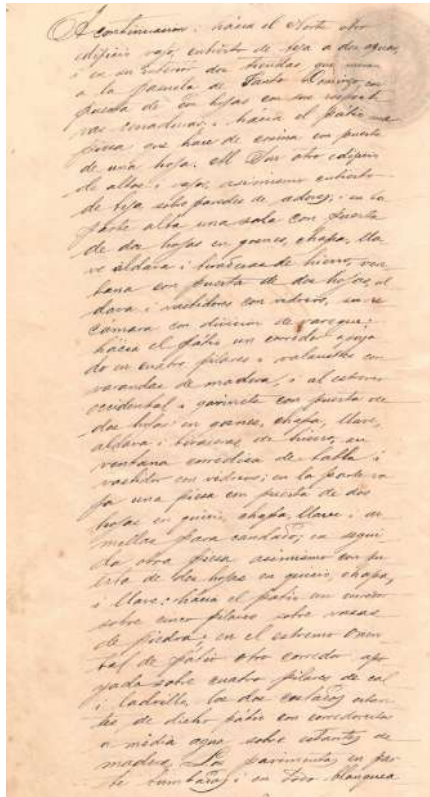 A continuacion: hácia el Norte otro
edificio vajo, cubierto de teja a dos aguas,
i en su interior dos tiendas que miran
a la Plazuela de Santo Domingo, con
puerta de dos hojas con sus respecti
vas cerraduras: hacia el pátio una
piesa que hace de cosina con puerta
de una hoja. Al Sur otro edificio
de altos i vajos, asimismo cubierto
de teja sobre paredes de adoves; en la
parte alta una sala con puerta
de dos hojas en gosnes, chapa, lla
ve aldava i tiraderas de hierro, ven
tana con puerta de dos hojas, al
dava i vastidores con vidrios, su re
camara con division de vareque:
hácia el pátio un corredor apoya
do en cuatro pilares i valaustre con
varandas de madera, i al estremo
occidental un gavinete con puerta de
dos hojas en gosnes, chapa, llave,
aldava i tiraderas de hierro, su
ventana corrediza de tabla i
vastidor con vidrios; en la parte va
ja una piesa con puerta de dos
hojas en quicio, chapa, llave i ar
mellas para candado; en segui
da otra piesa asimismo con pu
erta de dos hojas en quicio, chapa,
i llave: hácia el pátio un corredor
sobre cinco pilares sobre vasas
de piedra; en el estremo Orien
tal de pátio otro corredor apo
yado sobre cuatro pilares de cal
i ladrillo, los dos costados restan
tes de dicho pátio con corredorcitos
a média agua sobre estantes de
madera. Los pavimentos en par
te tumbados i en todo blanquea